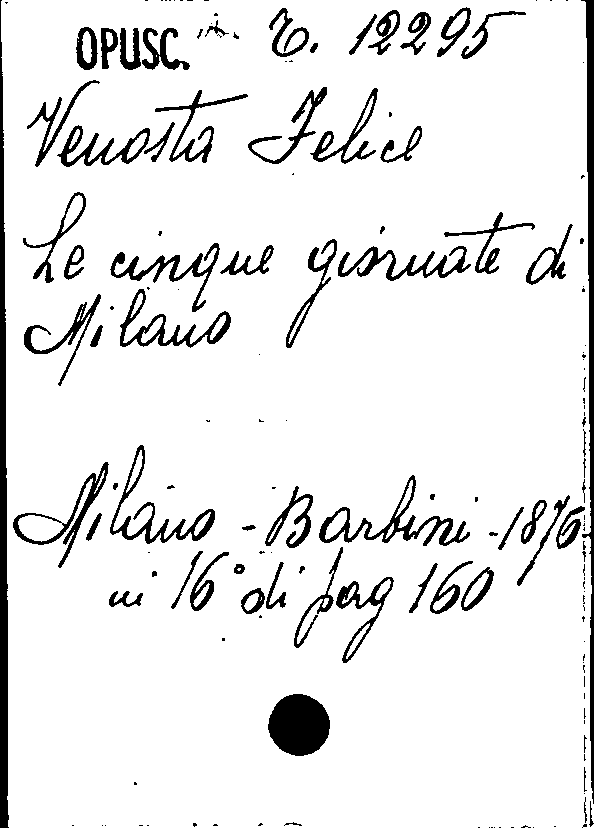 OPUSC. C. 12295
Venosta Felice
Le cinque giornate di
Milano
Milano - Barbini - 1876
in 16° di pag 160